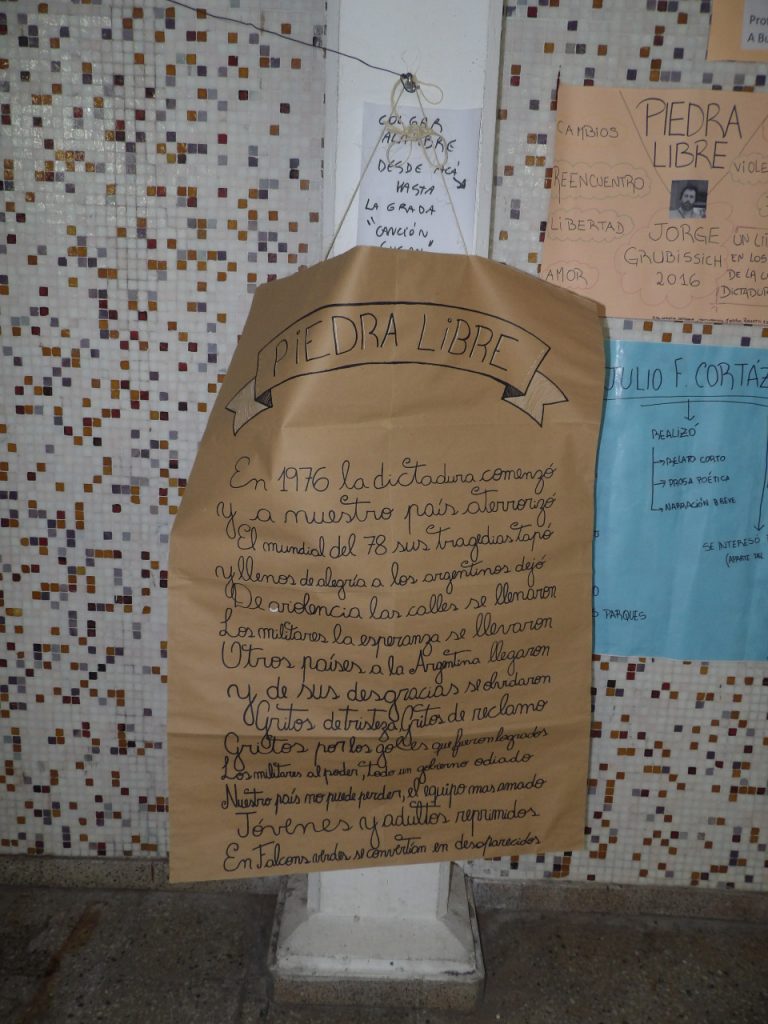 COLGAR
ALAMBRE
DESDE ACÁ
HASTA
LA GRADA
"CANCIÓN
PIEDRA LIBRE
En 1976 la dictadura comenzó
y a nuestro país aterrorizó
El mundial del 78 sus tragedias tapó
y llenos de alegría a los argentinos dejó
De violencia las calles se llenaron
Los militares la esperanza se llevaron
Otros países a la Argentina llegaron
y de sus desgracias se olvidaron
Gritos de tristeza, Gritos de reclamo
Gritos por los goles que fueron logrados
Los militares al poder, todo un gobierno odiado
Nuestro país no puede perder, el equipo mas amado
Jóvenes y adultos reprimidos
En Falcons verdes se convertían en desaparecidos
A Bu
PIEDRA
LIBRE
CAMBIOS
REENCUENTRO
LIBERTAD
AMOR
VIOLE
JORGE
GRUBISSICH
2016
UN LI
EN LOS
DE LA
DICTADUR
JULIO F. CORTÁZ
REALIZÓ
RELATO CORTO
PROSA POÉTICA
NARRACIÓN BREVE
SE INTERESÓ
PARQUES